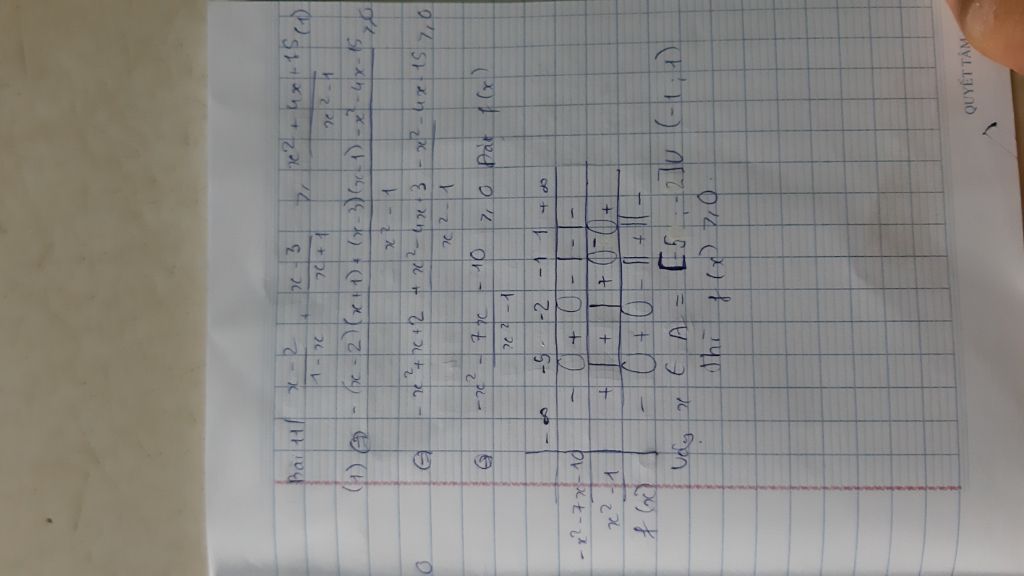 Bài 11/ (x-2)/(1-x) + (x-3)/(x+1) ≥ (x²+4x+15)/(x²-1) (1)
(1) ⇔ (-(x-2)(x+1)+(x-3)(x-1)-x²-4x-15)/(x²-1) ≥ 0
⇔ (-x²+x+2+x²-4x+3-x²-4x-15)/(x²-1) ≥ 0
⇔ (-x²-7x-10)/(x²-1) ≥ 0 Đặt f(x)
-∞ -5 -2 -1 1 +∞
-x²-7x-10 - 0 + 0 - | - | -
x²-1 + | + | + 0 - 0 +
f(x) - 0 + 0 - || + || -
Vậy x ∈ A = [-5 ; -2] ∪ (-1 ; 1)
thì f(x) ≥ 0.
QUYẾT TÂM
0